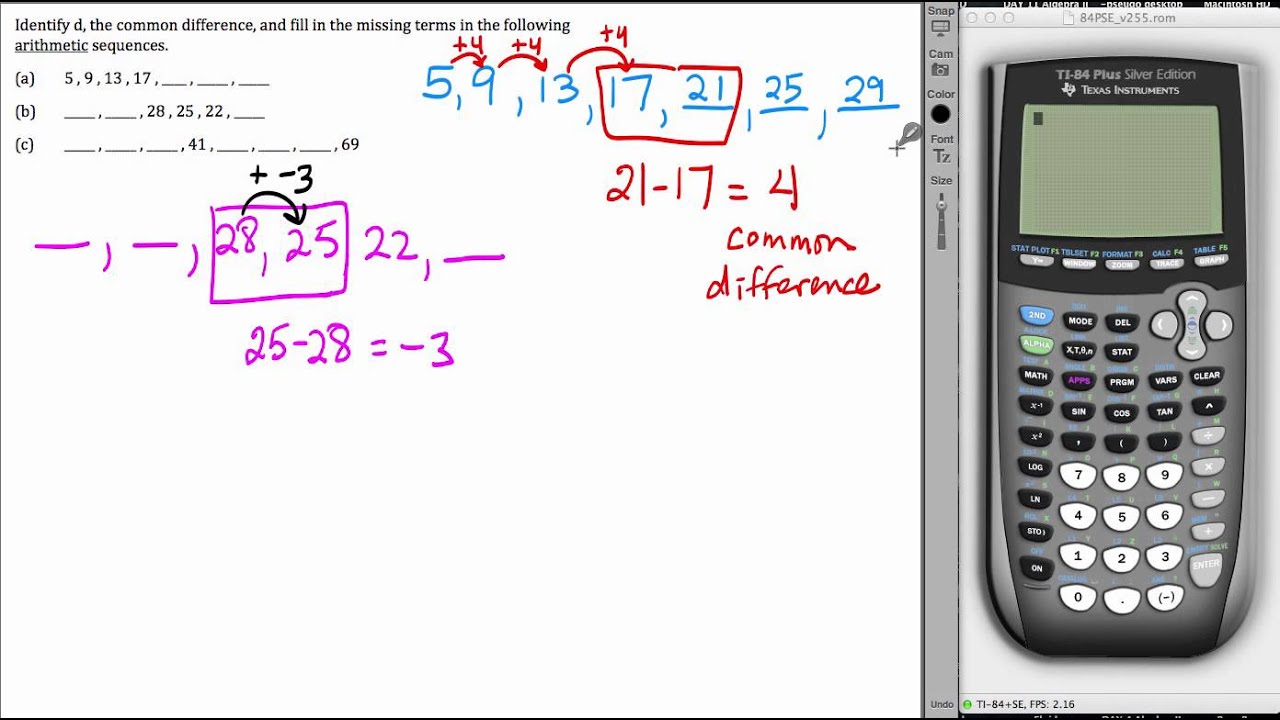 Identify d, the common difference, and fill in the missing terms in the following
arithmetic sequences.
(a) 5, 9, 13, 17, ___, ___, ___
(b) ___, ___, 28, 25, 22, ___
(c) ___, ___, ___, 41, ___, ___, ___, 69
+4 +4 +4
5, 9, 13, 17, 21, 25, 29
21-17 = 4
common
difference
+ -3
__, __, 28, 25 22, __
25-28 = -3
Snap
Cam
Color
Font
Tz
Size
Undo
84PSE_v255.rom
TI-84 Plus Silver Edition
TEXAS INSTRUMENTS
STAT PLOT F1 TBLSET F2 FORMAT F3 CALC F4 TABLE F5
Y= WINDOW ZOOM TRACE GRAPH
2ND MODE DEL
ALPHA X,T,θ,n STAT
MATH APPS PRGM VARS CLEAR
x⁻¹ SIN COS TAN ^
x² , ( ) ÷
LOG 7 8 9 ×
LN 4 5 6 −
STO› 1 2 3 +
ON 0 . (−) ENTER
TI-84+SE, FPS: 2.16